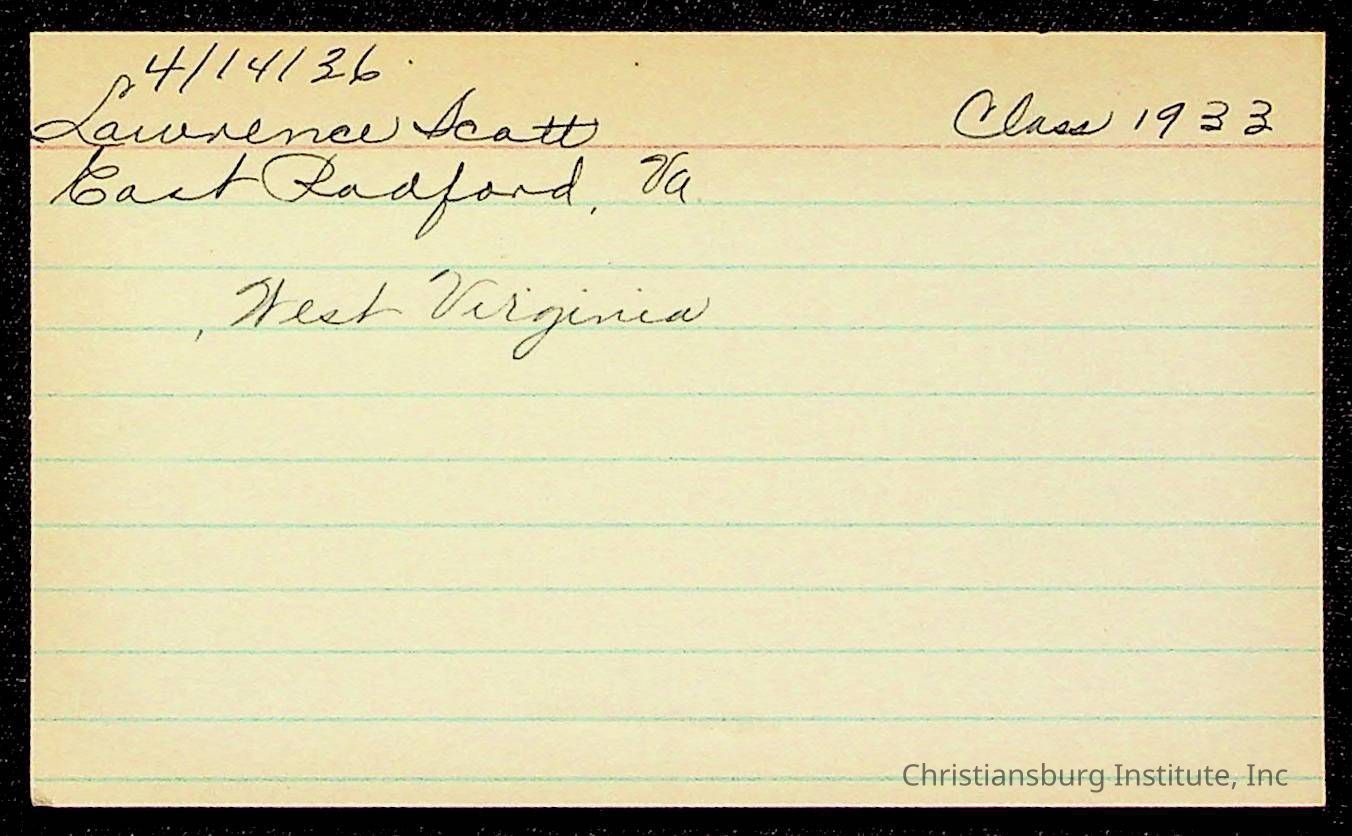 4/14/36
Lawrence Scott Class 1933
East Radford, Va
, West Virginia
Christiansburg Institute, Inc